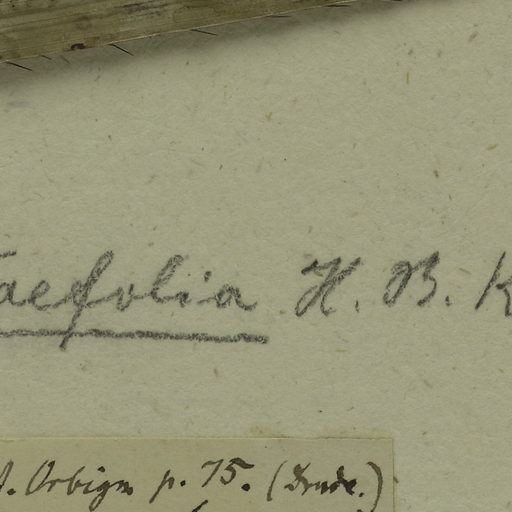 taefolia H. B. K
d. Orbign p. 75. (Drude.)